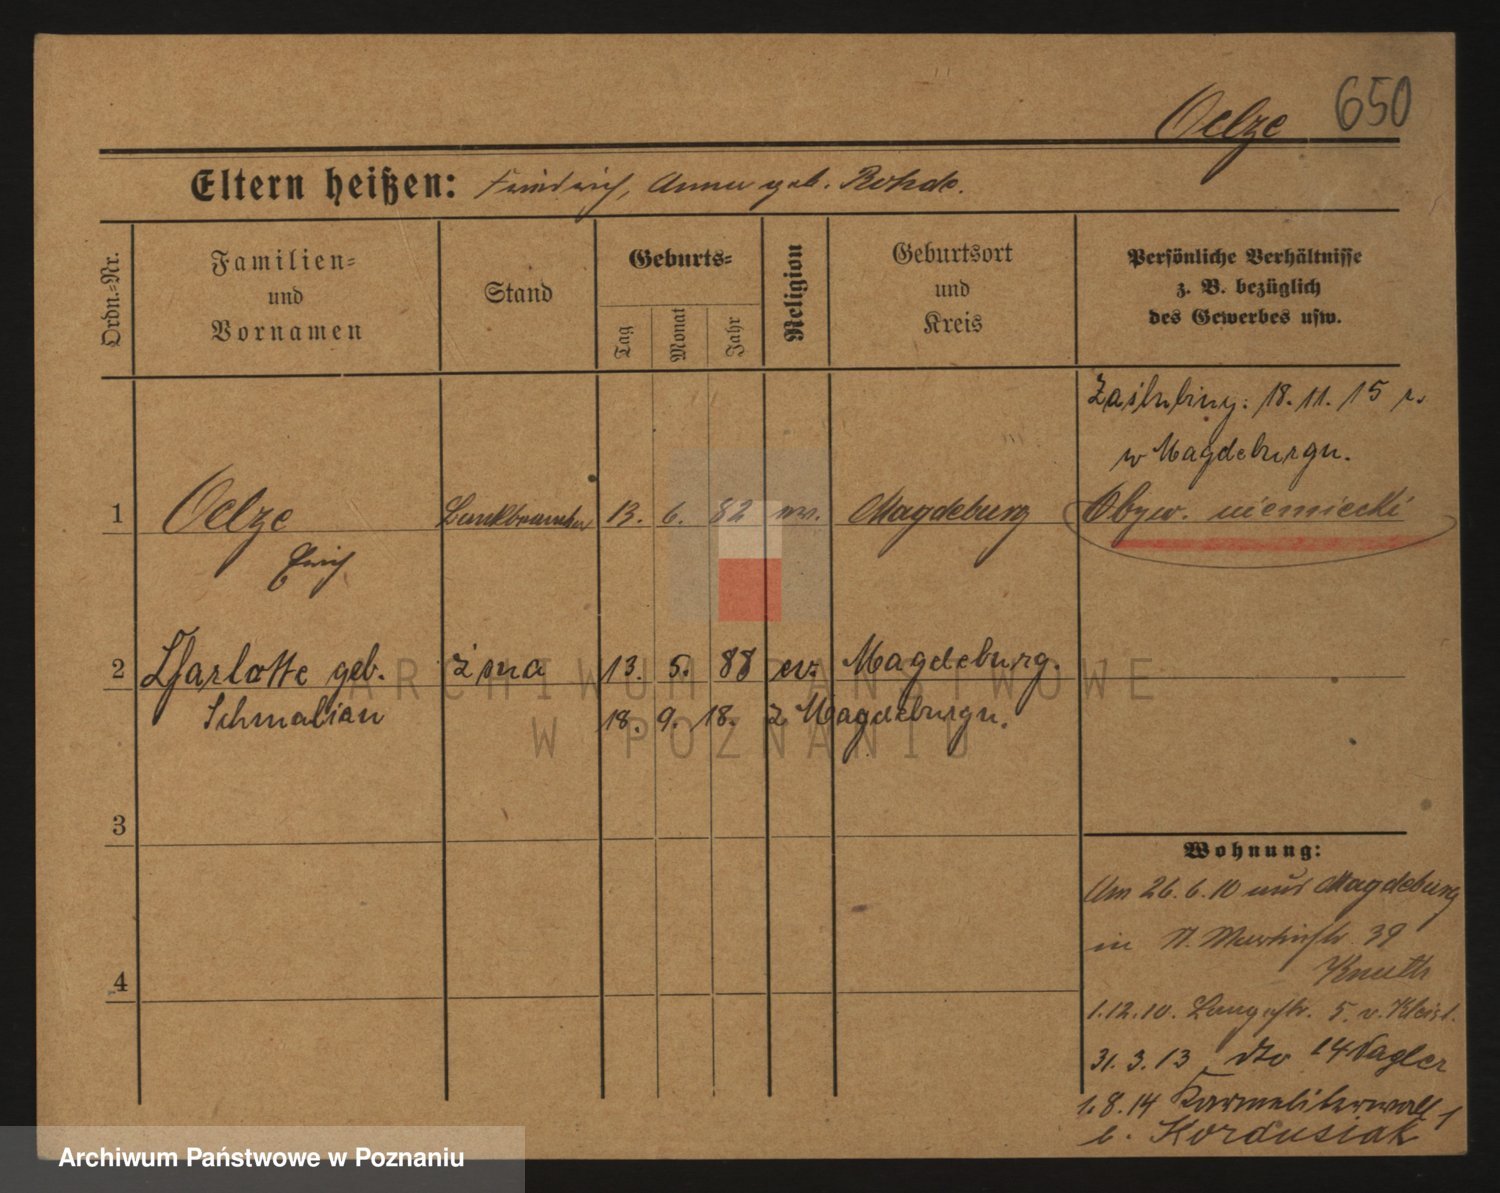 Oelze 650
Eltern heißen: Friedrich, Anna geb. Rohde.
Ordn.=Nr.
Familien=
und
Vornamen
Stand
Geburts=
Tag
Monat
Jahr
Religion
Geburtsort
und
Kreis
Persönliche Verhältnisse
z. B. bezüglich
des Gewerbes usw.
Zaślubiny: 18. 11. 15 r.
w Magdeburgu.
1 Oelze Bankbeamter 13. 6. 82 ev. Magdeburg Obyw. niemiecki
Erich
2 Charlotte geb. żona 13. 5. 88 ew. Magdeburg.
Schmalian 18. 9. 18. z Magdeburgu.
3
4
Wohnung:
Am 26. 6. 10 aus Magdeburg
in St. Martinstr. 39
Knuth
1. 12. 10. Langestr. 5. v. Kleist.
31. 3. 13 dto 14 Nagler
1. 8. 14 Karmeliterwall 1
b. Kordusiak
ARCHIWUM PAŃSTWOWE
W POZNANIU
Archiwum Państwowe w Poznaniu